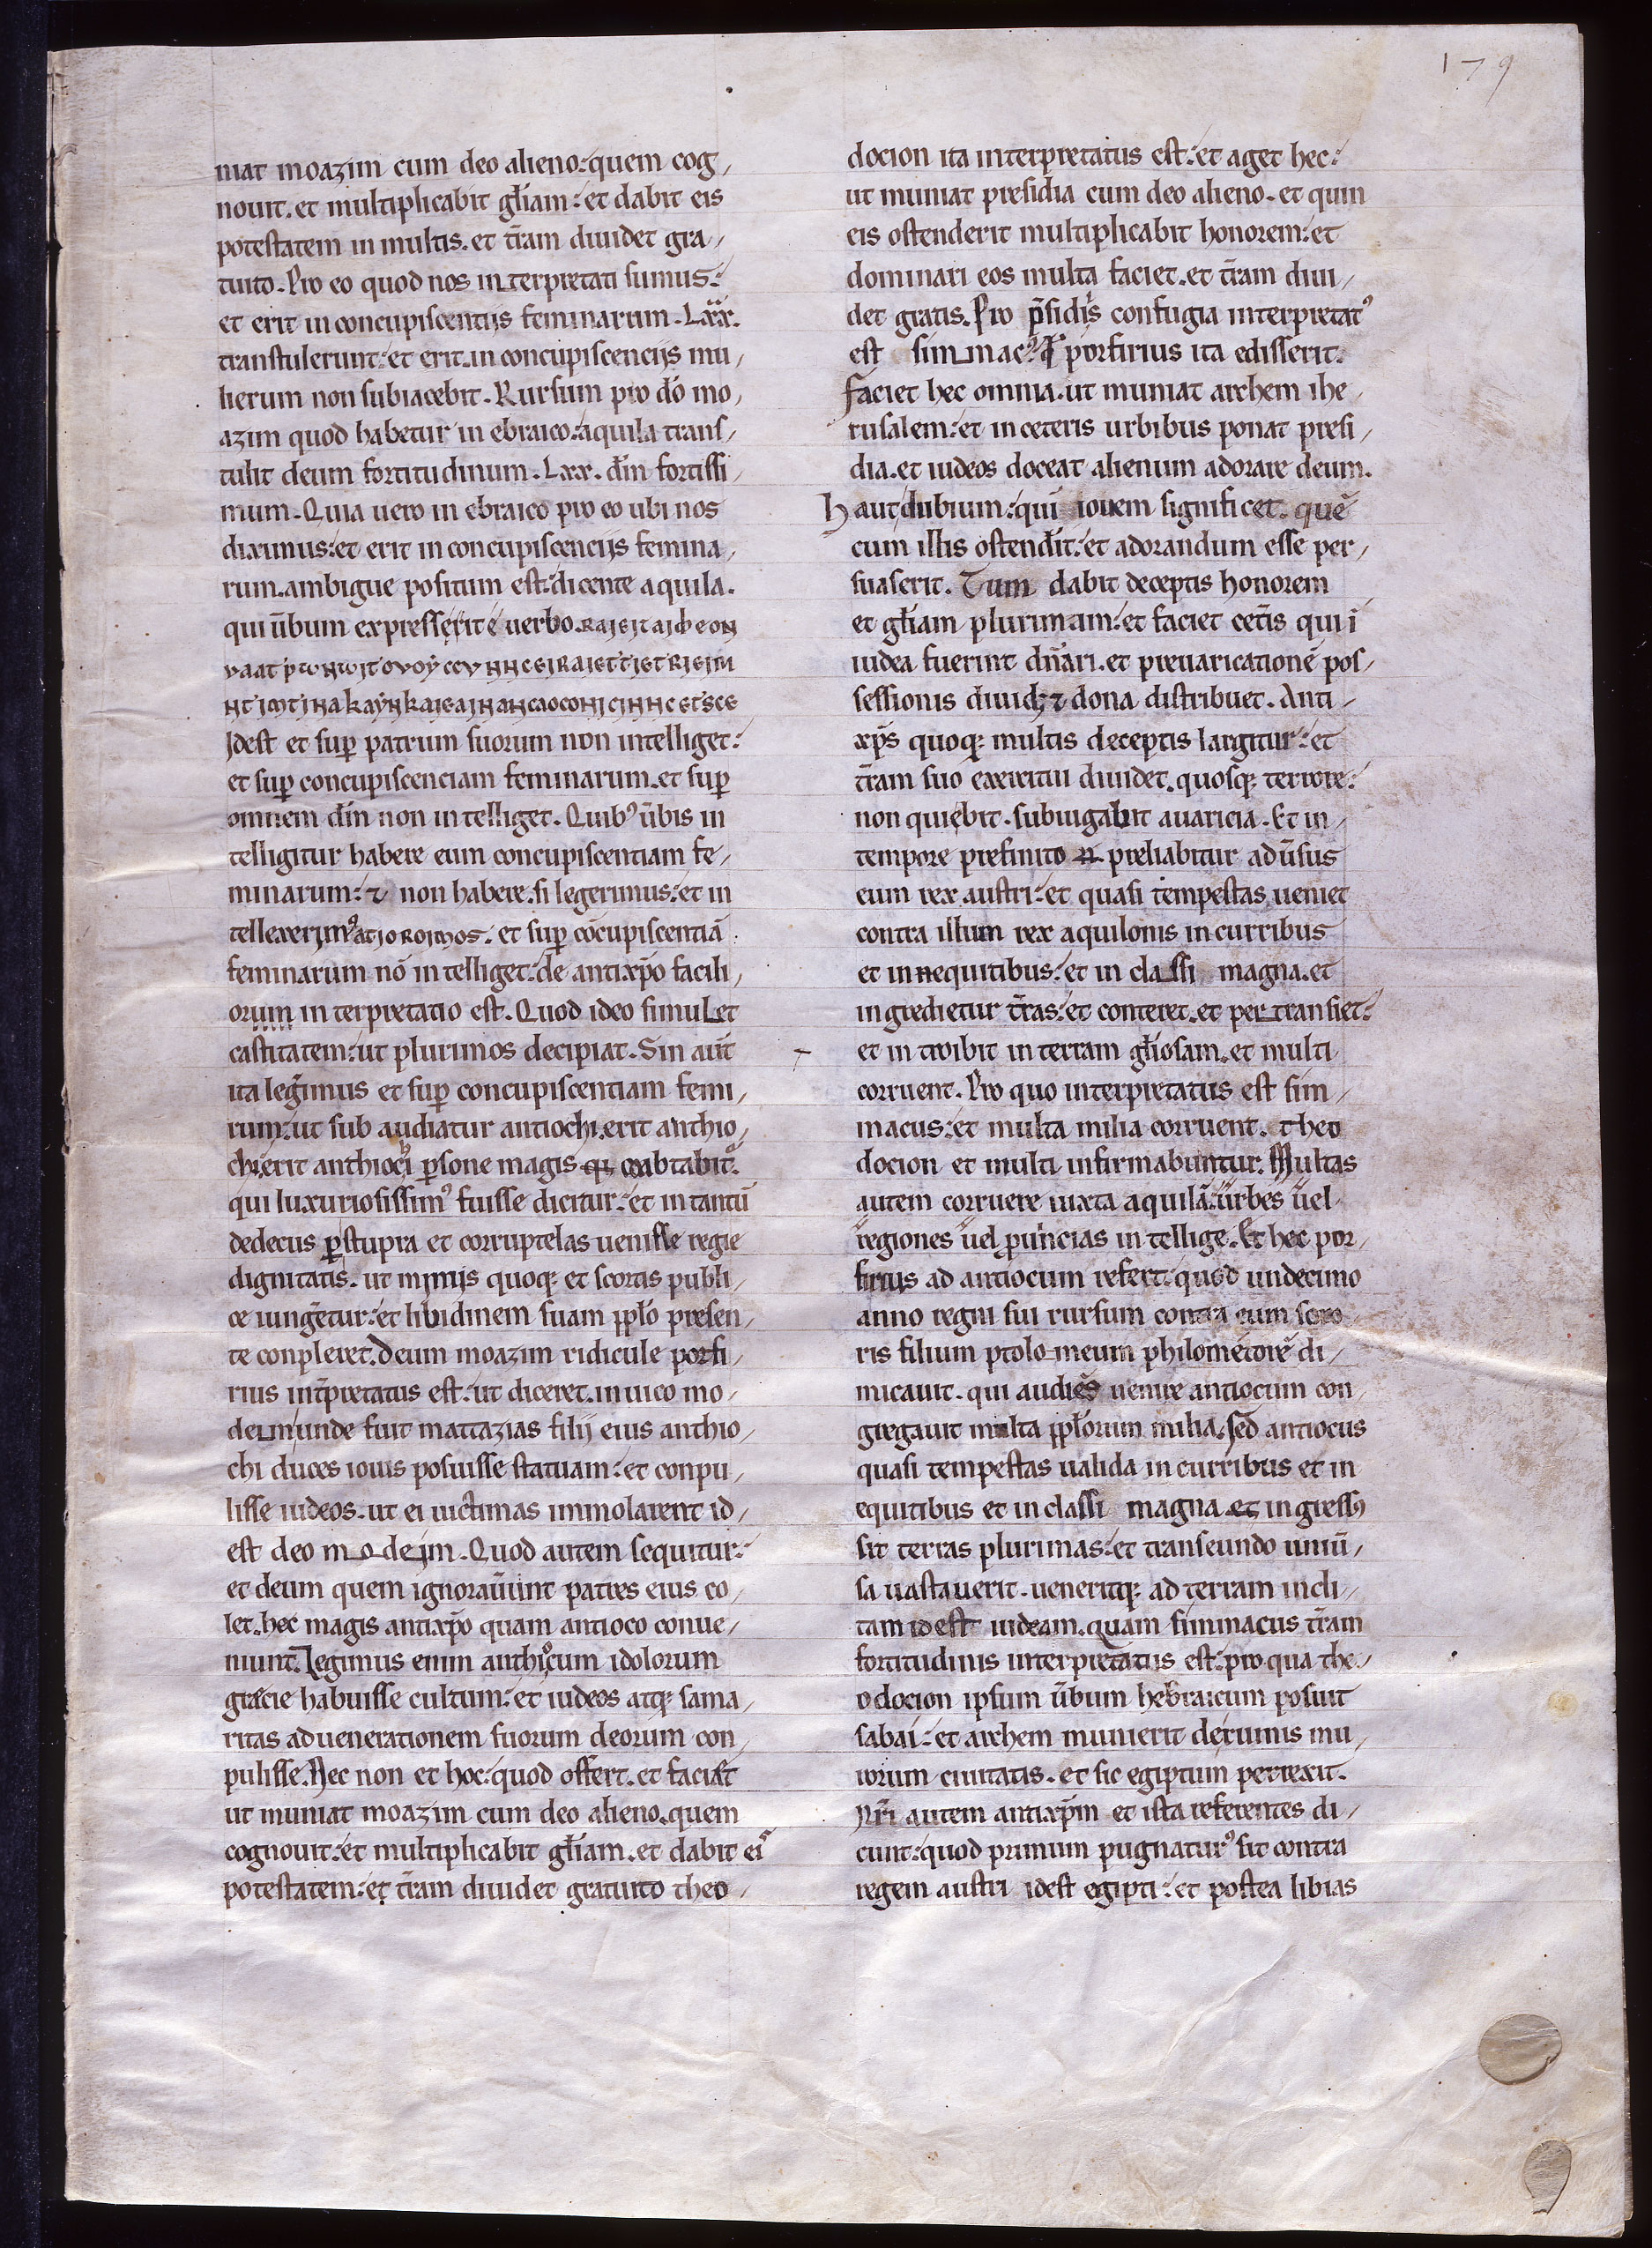 179
niat moazim cum deo alieno: quem cog,
nouit. et multiplicabit gl̄iam: et dabit eis
potestatem in multis. et t̄ram diuidet gra,
tuito. Pro eo quod nos interpretati sumus:
et erit in concupiscentijs feminarum. Lxx.
transtulerunt: et erit in concupiscencijs mu,
lierum non subiacebit. Rursum pro dō mo,
azim quod habetur in ebraico: aquila trans,
tulit deum fortitudinum. Lxx. dm̄ fortissi,
mum. Quia uero in ebraico pro eo ubi nos
diximus: et erit in concupiscencijs femina,
rum. ambigue positum est: dicente aquila.
qui ūbum expresserit é uerbo.
Idest et sup̱ patrum suorum non intelliget:
et sup̱ concupiscenciam feminarum. et sup̱
omnem dm̄ non intelliget. Quibꝰ ūbis in
telligitur habere eum concupiscentiam fe,
minarum: ⁊ non habere. si legerimus: et in
tellexerimꝰ . et sup̱ cōcupiscentiā
feminarum nō intelliget: de antixp̄o facili,
orum interpretatio est. Quod ideo simulet
castitatem: ut plurimos decipiat. Sin aut̄
ita leg̓imus et sup̱ concupiscentiam femi,
rum: ut sub audiatur antiochi. erit anthio,
chi. erit anthioci ꝑsone magis coabtabit᷑.
qui luxuriosissimꝰ fuisse dicitur: et in tantū
dedecus ꝑ stupra et corruptelas uenisse regie
dignitatis. ut mimis quoqꝫ et scortis publi,
ce iung̓etur: et libidinem suam pp̄lo presen,
te conpleret. Deum moazim ridicule porfi,
rius int̓pretatus est: ut diceret. in uico mo,
deim unde fuit mattazias filij eius anthio,
chi duces iouis posuisse statuam: et conpu,
lisse iudeos. ut ei uictimas immolarent id,
est deo modeim. Quod autem sequitur:
et deum quem ignorauūnt patres eius co,
let. hec magis antixp̄o quam antioco conue,
niunt. Legimus enim anthiocum idolorum
grecie habuisse cultum: et iudeos atqꝫ sama,
ritas aduenerationem suorum deorum con,
pulisse. Nec non et hoc: quod offert. et faciat
ut muniat moazim cum deo alieno. quem
cognouit: et multiplicabit gl̄iam. et dabit eis
potestatem: et t̄ram diuidet gratuito theo,
docion ita interpretatus est: et aget hec:
ut muniat presidia cum deo alieno. et qum
eis ostenderit multiplicabit honorem: et
dominari eos multa faciet. et t̄ram diui,
det gratis. Pro p̄sidijs confugia interpretatꝰ
est simmacꝰ. porfirius ita edisserit:
faciet hec omnia. ut muniat archem ihe,
rusalem: et in ceteris urbibus ponat presi,
dia. et iudeos doceat alienum adorare deum.
Haut dubium: qui iouem significet. quē
cum illis ostendīt: et adorandum esse per,
suaserit. Tum dabit deceptis honorem
et gl̄iam plurimam: et faciet cet̄is qui ī
iudea fuerint dn̄ari. et preuaricationē pos,
sessionis diuidꝫ ⁊ dona distribuet. Anti,
xp̄s quoqꝫ multis deceptis largitur: et
t̄ram suo exercitui diuidet. quosqꝫ terrore:
non quiebit. subiugabit auaricia. Et in,
tempore prefinito preliabitur adūsus
eum rex austri: et quasi tempestas ueniet
contra illum rex aquilonis in curribus
et in equitibus: et in classi magna. et
ingredietur t̄ras: et conteret. et per transiet:
et introibit in terram gl̄iosam. et multi
corruent. Pro quo interpretatus est sim,
macus: et multa milia corruent. theo
docion et multi infirmabuntur. Multas
autem corruere iuxta aquilā: urbes uel
regiones uel prouincias intellige. Et hec por,
firius ad antiocum refert: quod undecimo
anno regni sui rursum contra eum soro,
ris filium ptolomeum philometorē di,
micauit. qui audiēs uenire antiocum con,
gregauit multa pp̄lorum milia. sed antiocus
quasi tempestas ualida in curribus et in
equitibus et in classi magna et ingressꝰ
sit terras plurimas: et transeundo uniū,
sa uastauerit. ueneritqꝫ ad terram incli,
tam id est iudeam. quam simmacus t̄ram
fortitudinis interpretatus est: pro qua the,
odocion ipsum ūbum hebraicum posuit
sabai: et archem munierit de ruinis mu,
rorum ciuitatis. et sic egiptum perrexit.
Nr̄i autem antixp̄m et ista referentes di,
cunt: quod primum pugnaturꝰ sit contra
regem austri idest egipti: et postea libias